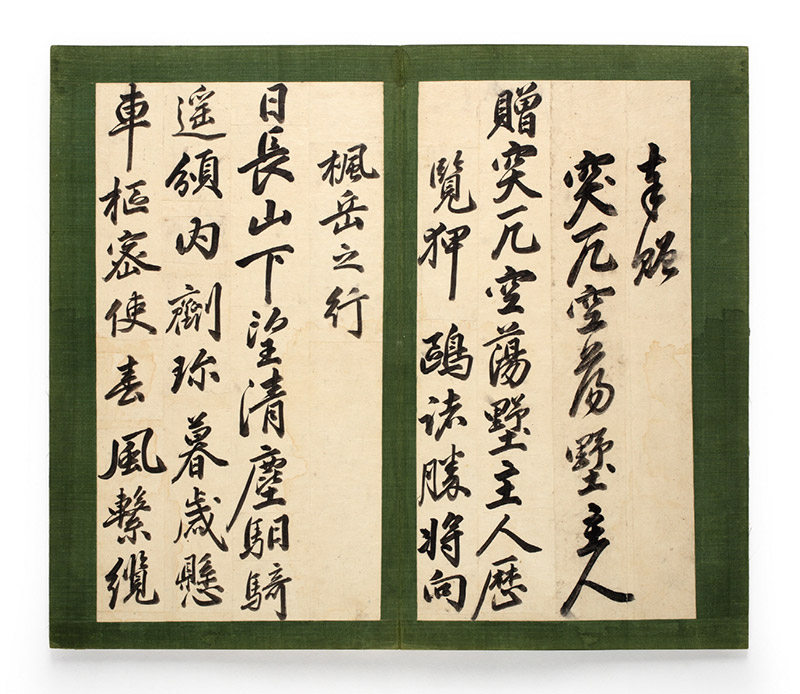 奉贈
突兀空蕩墅主人
贈突兀空蕩墅主人歷
覽狎鷗諸勝將向
楓岳之行
日長山下望清塵馹騎
遥頒内劑珎暮歲懸
車樞密使春風繫纜